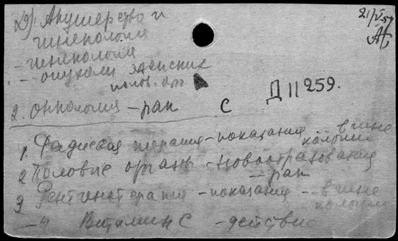 Акушерство и
гинекология
- гинекология
- опухоли женских
полов. орг
2. онкология - рак С Д II 259.
1 Радиевая терапия - показания в гине
кологии
2 Половые органы - новообразования
-- рак
3 Рентгенотерапия - показания - в гине
кологии
- 4 Витамин С - действие